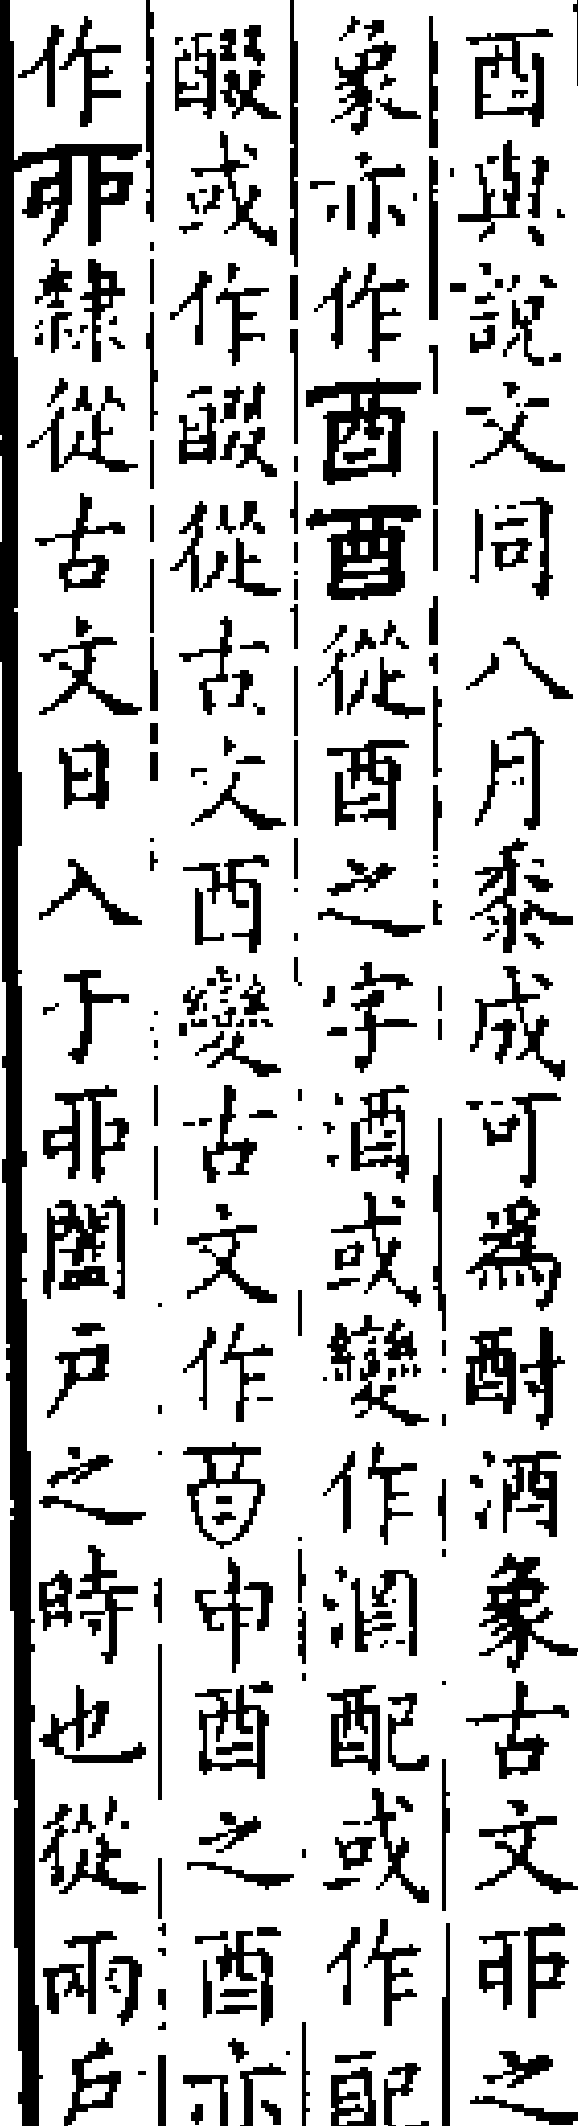 酉與說文同八月黍成可為酎酒象古文丣之
象亦作酉酉從酉之字酒或變作泗配或作配
醊或作醊從古文酉變古文作𠧪申酉之酉亦
作丣隸從古文日入于丣闔戶之時也從兩戶